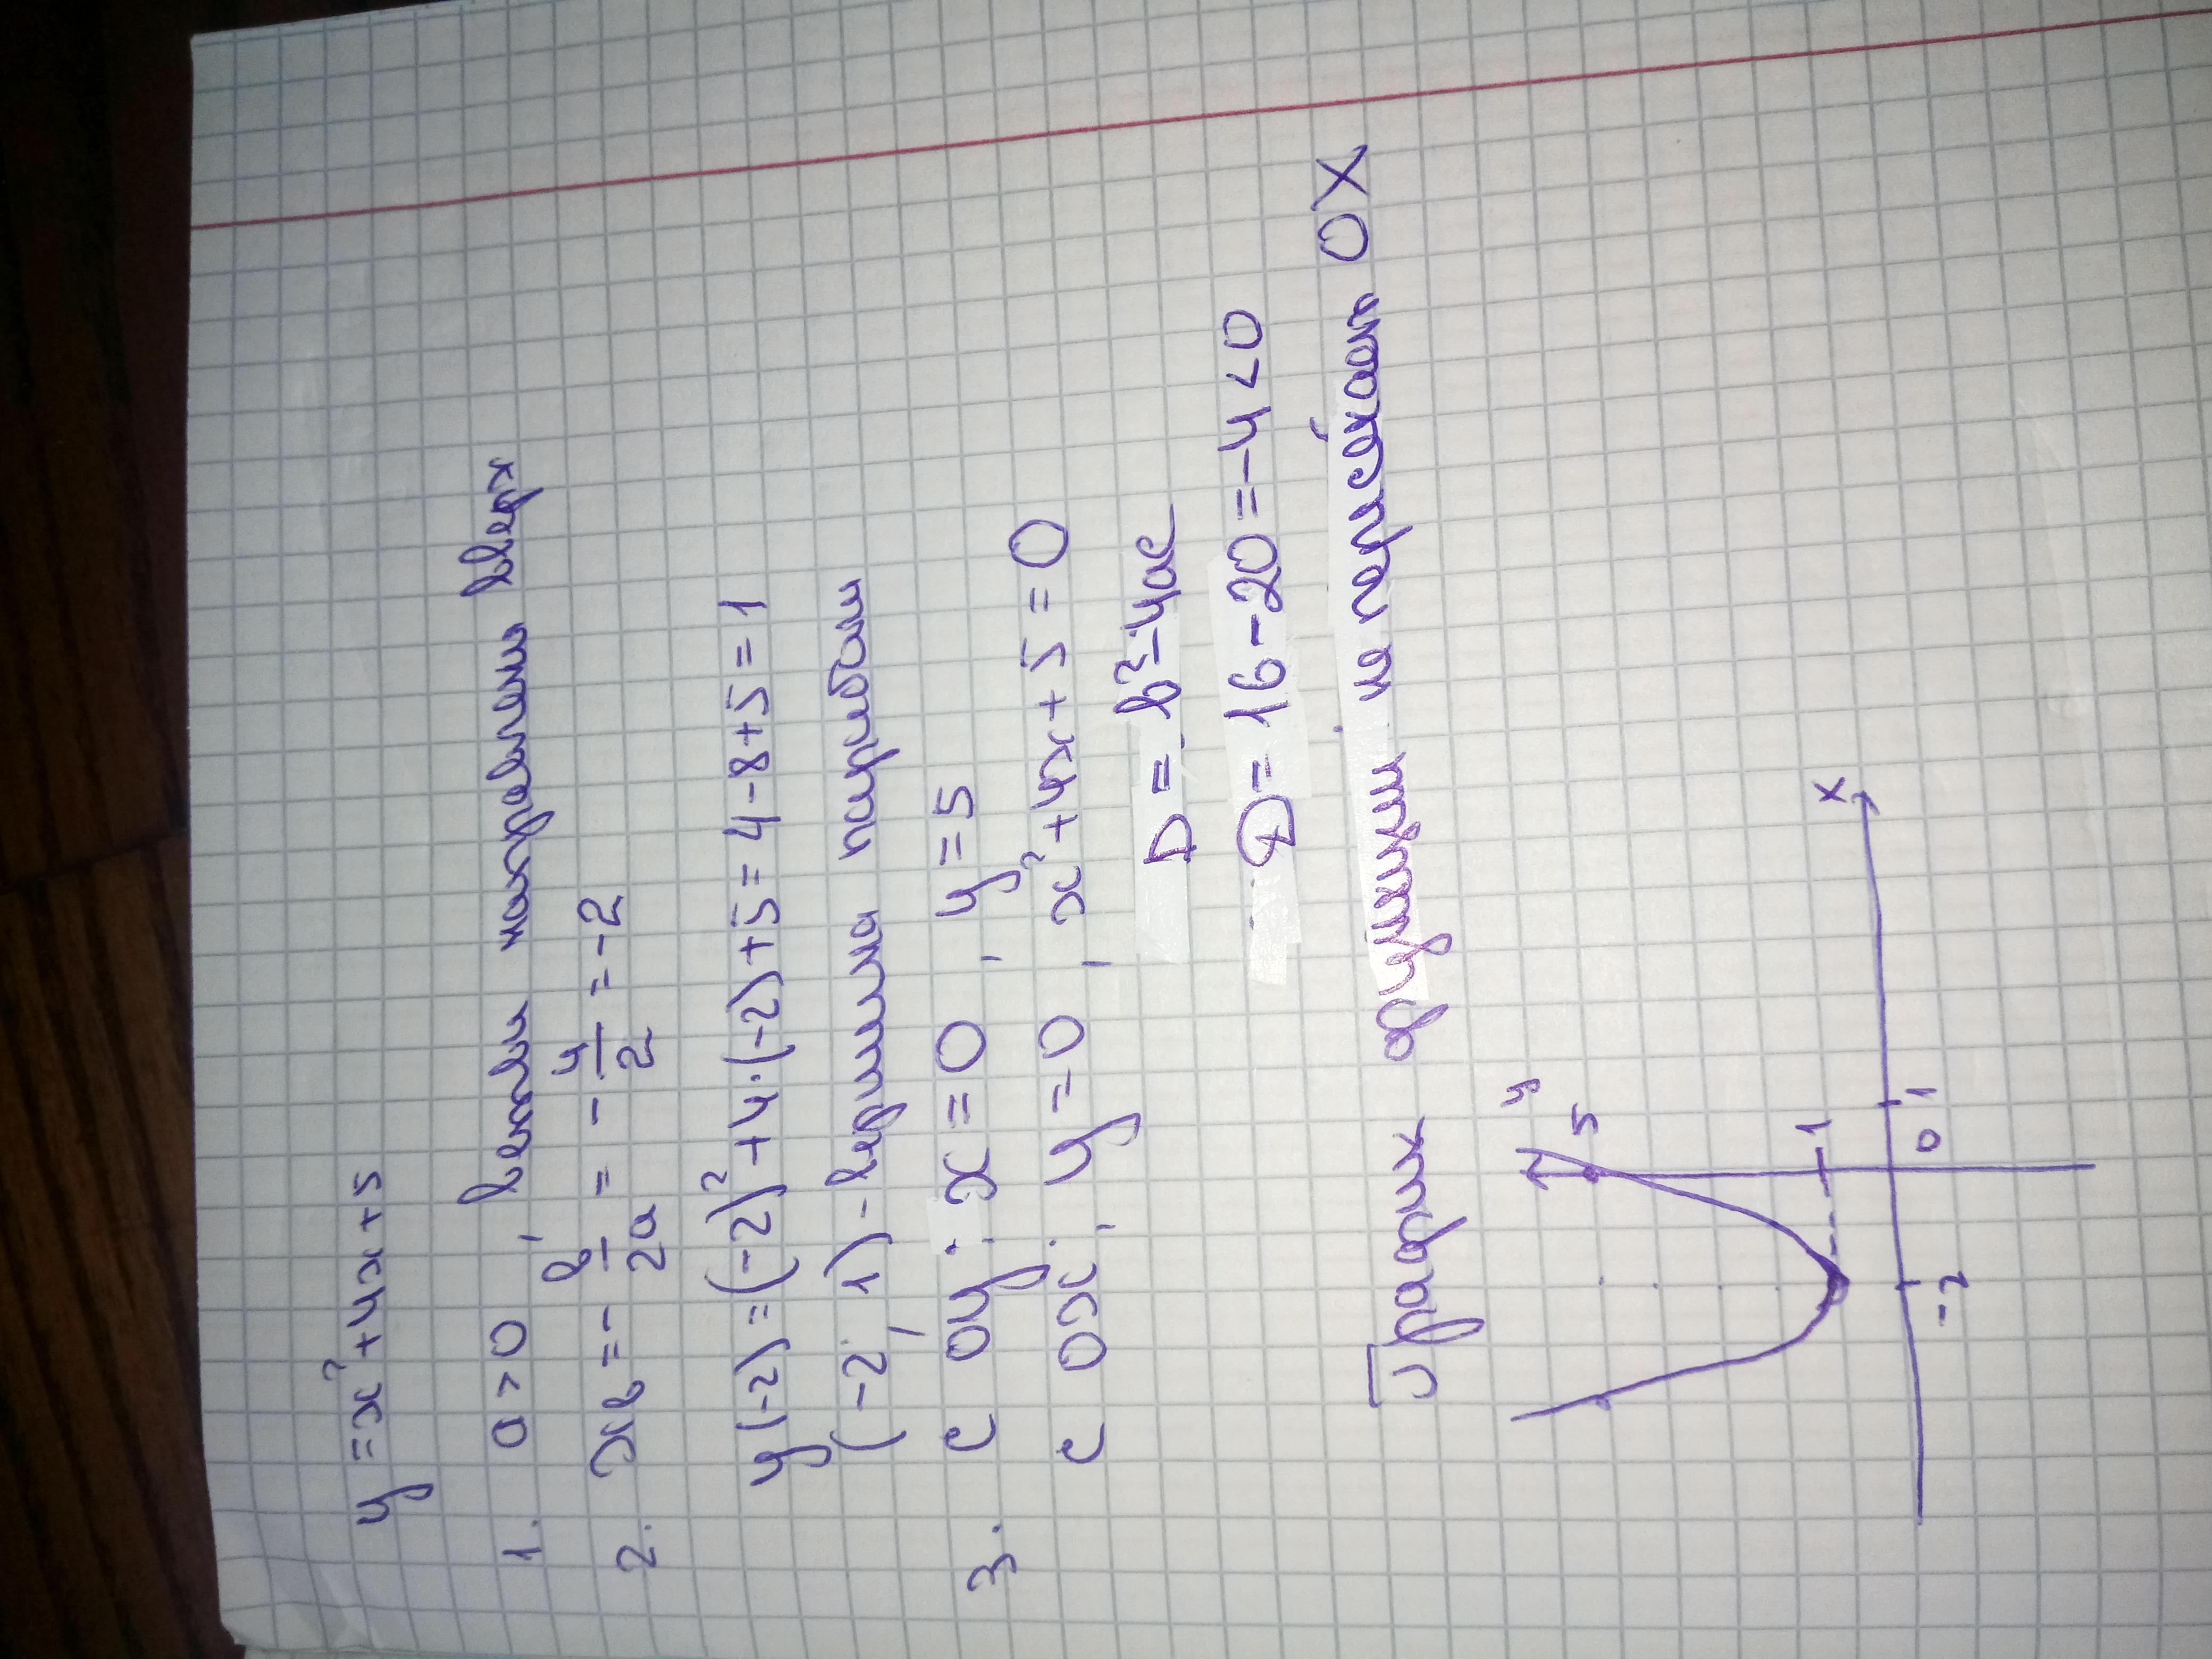 y = x² + 4x + 5
1. a > 0, ветви направлены вверх
2. xв = - в/2a = - 4/2 = -2
y(-2) = (-2)² + 4·(-2) + 5 = 4 - 8 + 5 = 1
(-2; 1) - вершина параболы
3. с oy: x = 0, y = 5
с ox: y = 0, x² + 4x + 5 = 0
D = в² - 4ac
D = 16 - 20 = -4 < 0
График функции не пересекает OX
y
5
1
x
-2
0
1